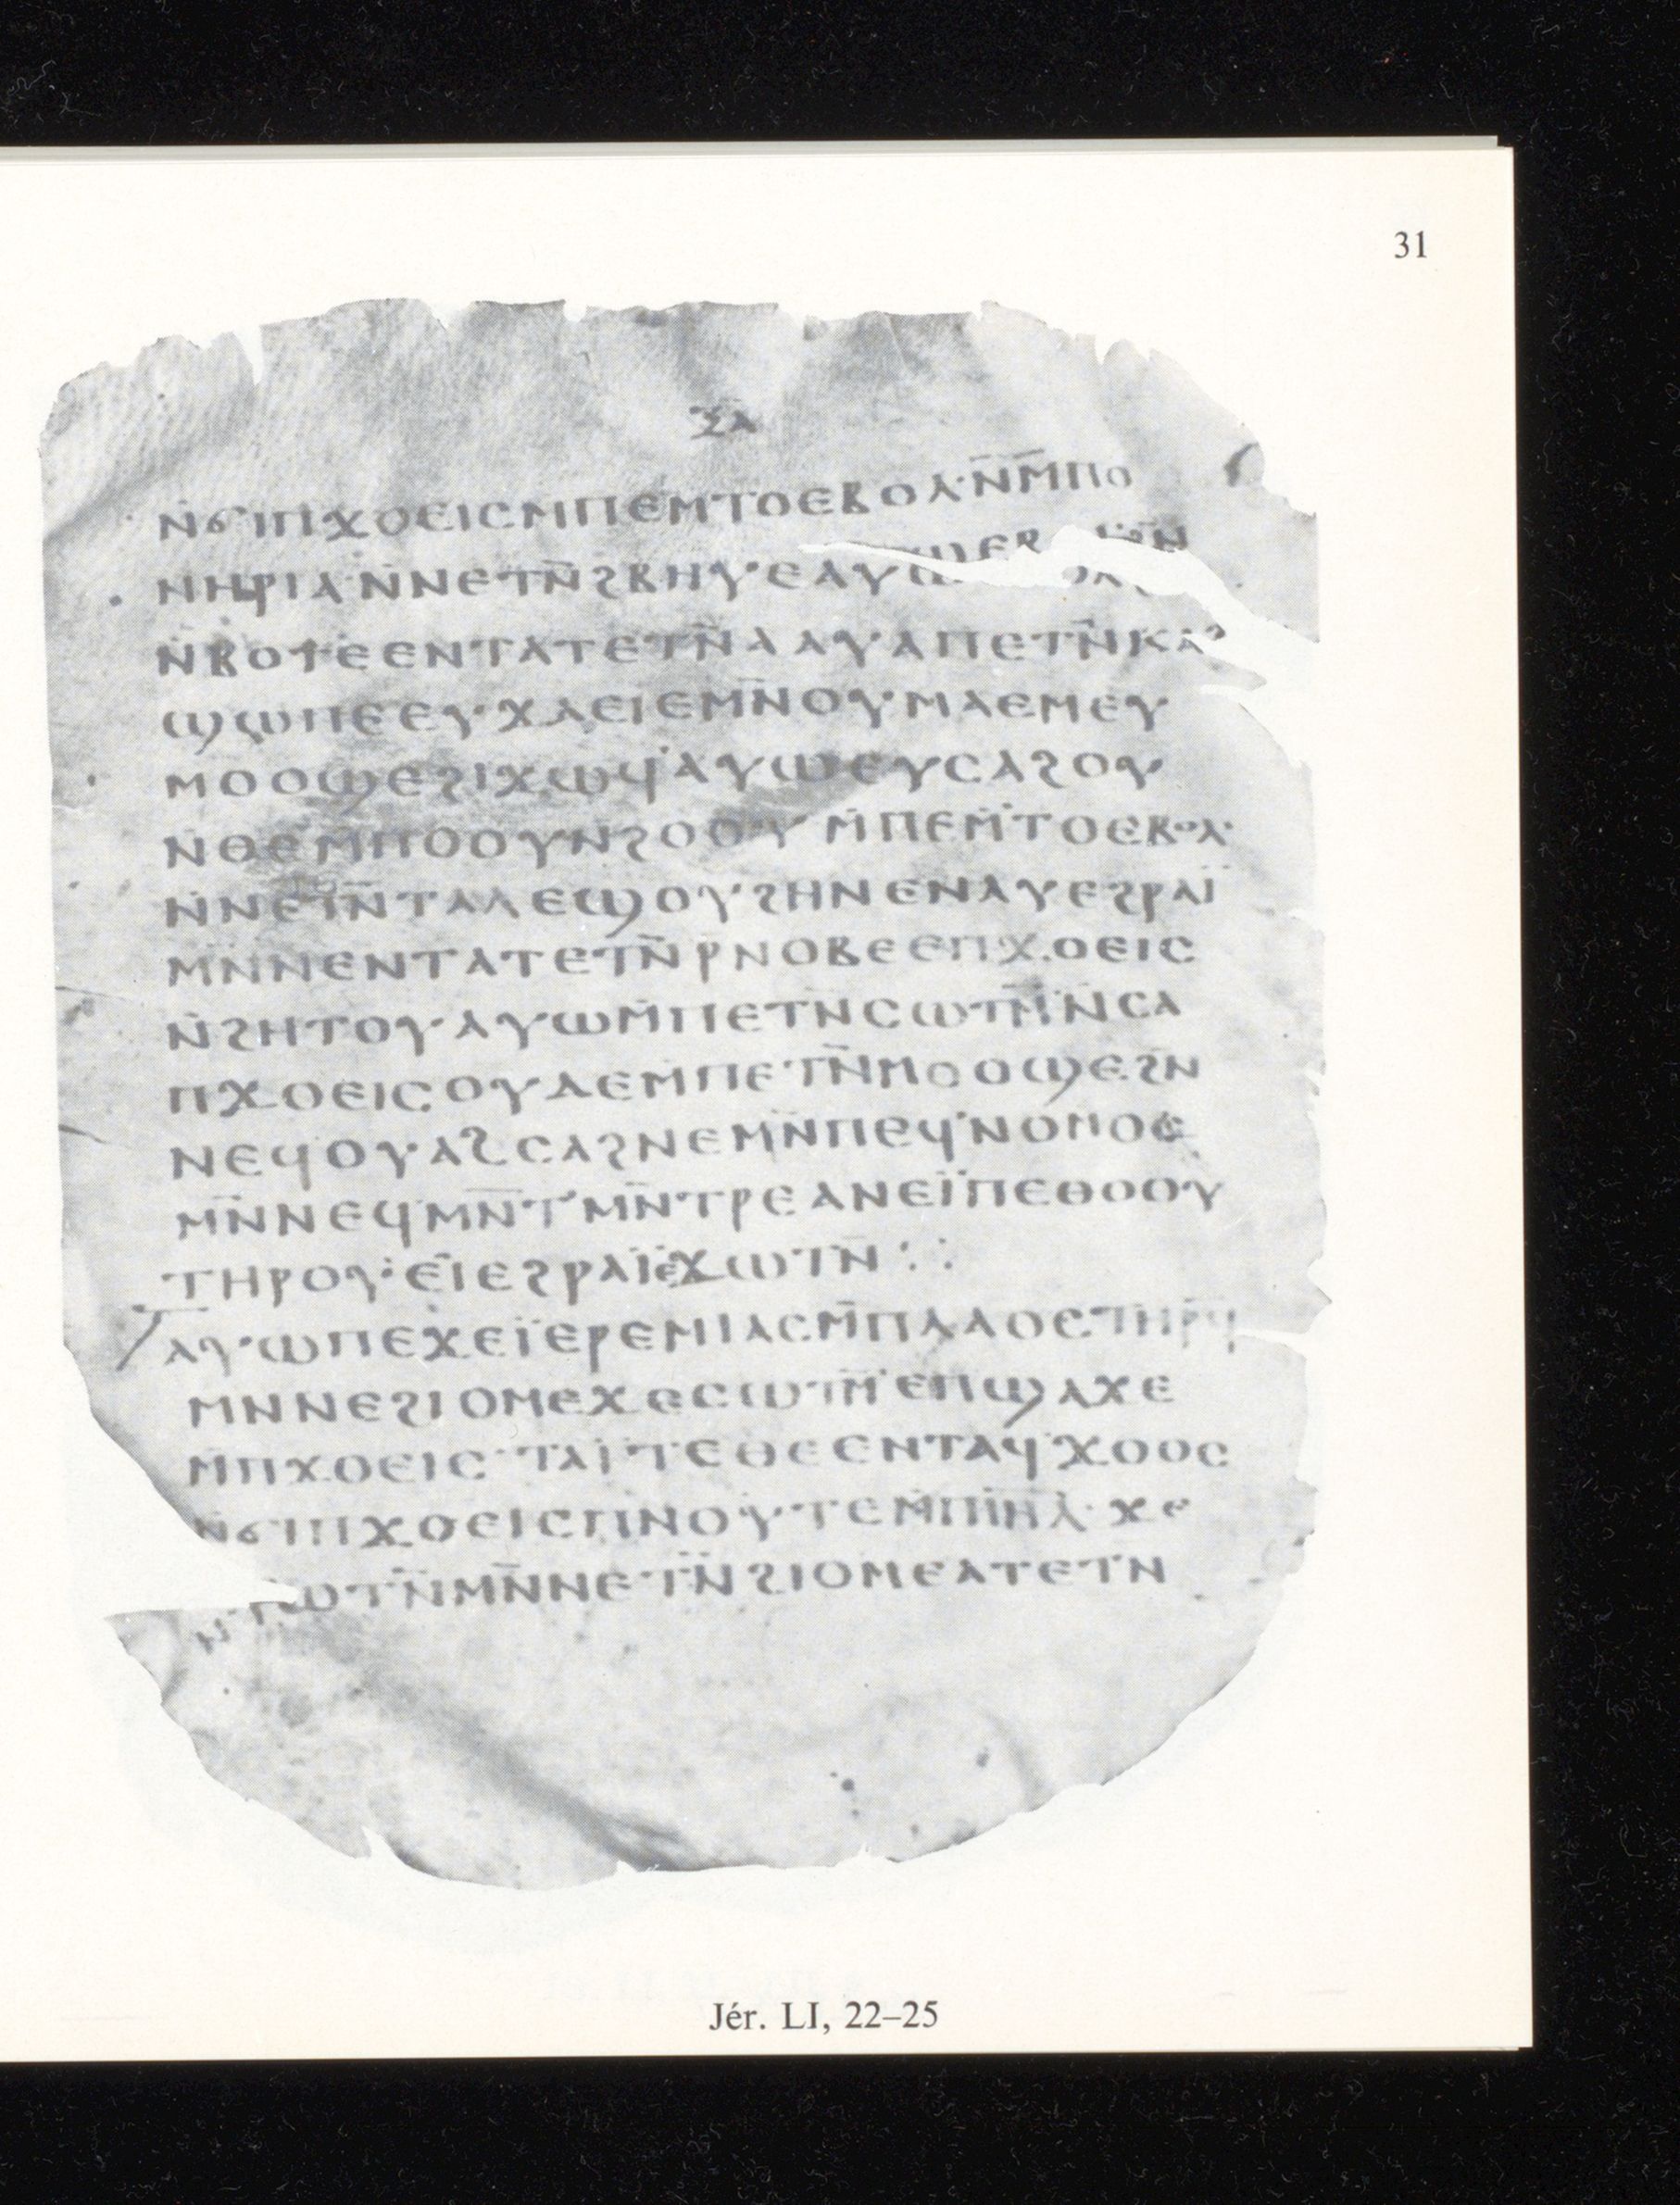 31
ⲝⲁ
ⲛ̄ϭⲓⲡϫⲟⲉⲓⲥⲙⲡⲉⲙⲧⲟⲉⲃⲟⲗ·ⲛ̄ⲙ̄ⲡⲟ
ⲛⲏⲣⲓⲁ·ⲛ̄ⲛⲉⲧⲛ̄ϩⲃⲏⲩⲉⲁⲩⲱ
ⲛ̄ⲃⲟⲧⲉⲉⲛⲧⲁⲧⲉⲧⲛ̄ⲁⲁⲩⲁⲡⲉⲧⲛ̄ⲕⲁϩ
ϣⲱⲡⲉⲉⲩϫⲁⲉⲓⲉⲙⲛ̄ⲟⲩⲙⲁⲉⲙⲉⲩ
ⲙⲟⲟϣⲉϩⲓϫⲱϥ·ⲁⲩⲱⲉⲩⲥⲁϩⲟⲩ
ⲛⲑⲉⲙⲡⲟⲟⲩⲛϩⲟⲟⲩ ⲙ̄ⲡⲉⲙ̄ⲧⲟⲉⲃⲟⲗ·
ⲛ̄ⲛⲉⲧⲛ̄ⲧⲁⲗⲉϣⲟⲩϩⲏⲛⲉⲛⲁⲩⲉϩⲣⲁⲓ̈
ⲙⲛⲛⲉⲛⲧⲁⲧⲉⲧⲛ̄ⲣ̄ⲛⲟⲃⲉⲉⲡϫⲟⲉⲓⲥ
ⲛ̄ϩⲏⲧⲟⲩ·ⲁⲩⲱⲙ̄ⲡⲉⲧⲛⲥⲱⲧⲙ̄ⲛ̄ⲥⲁ
ⲡϫⲟⲉⲓⲥⲟⲩⲇⲉⲙⲡⲉⲧⲛ̄ⲙⲟⲟϣⲉϩⲛ
ⲛⲉϥⲟⲩⲁϩⲥⲁϩⲛⲉⲙⲛ̄ⲡⲉϥⲛⲟⲙⲟⲥ
ⲙⲛ̄ⲛⲉϥⲙⲛ̄ⲧⲙⲛ̄ⲧⲣⲉⲁⲛⲉⲓ̈ⲡⲉⲑⲟⲟⲩ
ⲧⲏⲣⲟⲩ·ⲉ̂ⲓⲉϩⲣⲁⲓ̈ⲉϫⲱⲧⲛ̄ ⁖
ⲁⲩⲱⲡⲉϫⲉⲓ̈ⲉⲣⲉⲙⲓⲁⲥⲙ̄ⲡⲗⲁⲟⲥⲧⲏⲣϥ
ⲙⲛⲛⲉϩⲓⲟⲙⲉϫⲉⲥⲱⲧⲙ̄ⲉⲡϣⲁϫⲉ
ⲙⲡϫⲟⲉⲓⲥ·ⲧⲁⲓ̈ⲧⲉⲑⲉⲉⲛⲧⲁϥϫⲟⲟⲥ
ⲛϭⲓⲡϫⲟⲉⲓⲥⲡⲛⲟⲩⲧⲉⲙ̄ⲡⲓ̄ⲏ̄ⲗ̄·ϫⲉ
ⲛⲧⲱⲧⲛ̄ⲙⲛ̄ⲛⲉⲧⲛ̄ϩⲓⲟⲙⲉⲁⲧⲉⲧⲛ
Jér. LI, 22–25